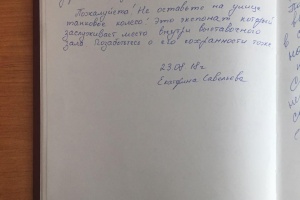 Пожалуйста! Не оставьте на улице
танковое колесо! Это экспонат который
заслуживает место внутри выставочного
зала Позаботьтесь о его сохранности тоже
23.08.18г.
Екатерина